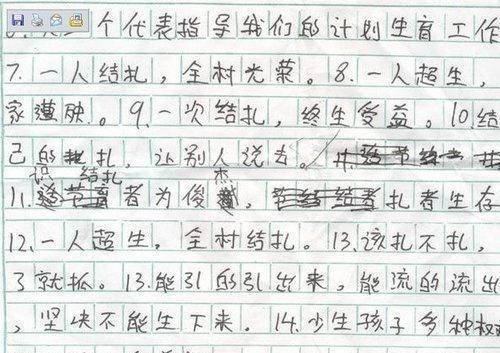 个代表指导我们的计划生育工作
7. 一人结扎，全村光荣。8. 一人超生，
家遭殃。9. 一次结扎，终生受益。10. 结
己的扎，让别人说去。
识 结扎 杰
11. 者为俊，扎者生存
12. 一人超生，全村结扎。13. 该扎不扎，
了就抓。13. 能引的引出来，能流的流出
，坚决不能生下来。14. 少生孩子多种树